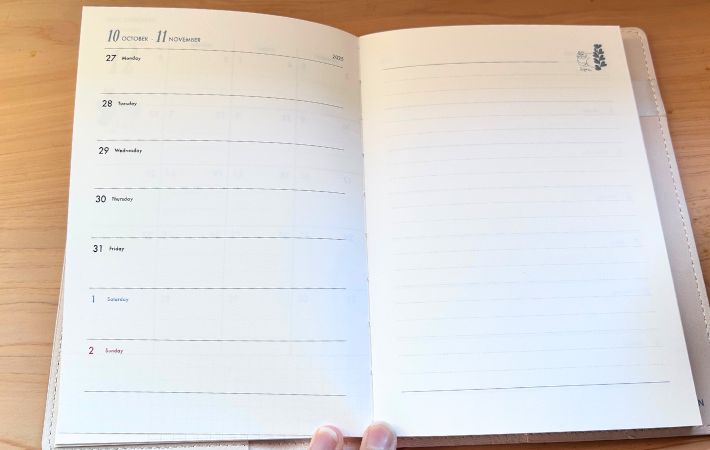 10 OCTOBER - 11 NOVEMBER
2025
27 Monday
28 Tuesday
29 Wednesday
30 Thursday
31 Friday
1 Saturday
2 Sunday
N